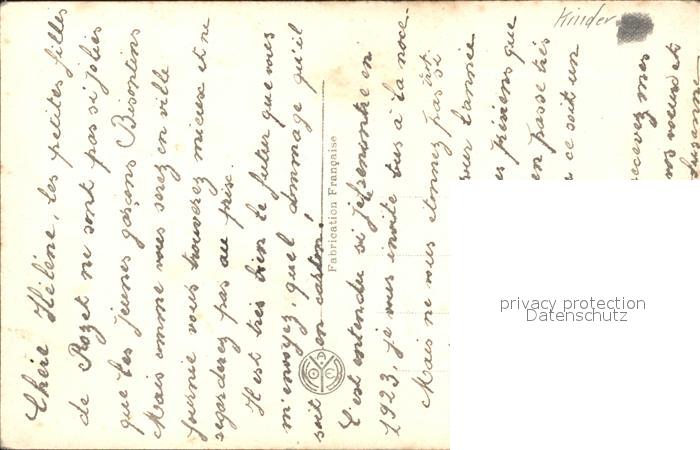 Chère Hélène, les petites filles
de Rozet ne sont pas si jolies
que les jeunes garçons Bisontins
Mais comme vous serez en ville
fournie vous trouverez mieux et ne
regarderez pas au prix.
Il est très bien le futur que vous
m'envoyez quel dommage qu'il
soit en carton!
C'est entendu si je rencontre en
1923, je vous invite tous à la noce.
Mais ne vous étonnez pas si
pour l'année
que
en passe très
ce soit un
recevez mes
Fabrication Française
Kinder
privacy protection
Datenschutz